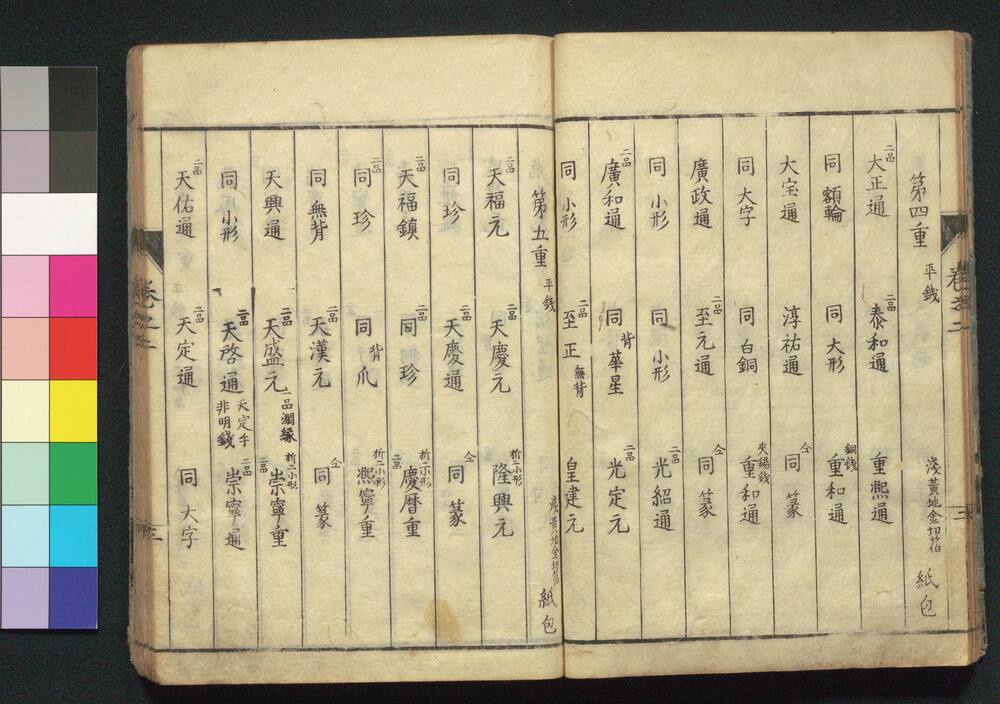 第四重 平銭 浅黄地金切箔 紙包
二品 大正通 二品 泰和通 重熙通
同 額輪 同 大形 銅銭 重和通
大宝通 淳祐通 仝 同 篆
同 大字 同 白銅 夾錫銭 重和通
廣政通 二品 至元通 仝 同 篆
同 小形 同 小形 二品 光紹通
二品 廣和通 同 背華星 二品 光定元
同 小形 二品 至正 無背 皇建元
第五重 平銭 浅黄地金切箔 紙包
二品 天福元 二品 天慶元 折二小形 隆興元
同 珍 二品 天慶通 仝 同 篆
二品 天福鎮 同 珍 折二小形 二品 慶暦重
二品 同 珍 同 背爪 折二小形 熙寧重
同 無背 二品 天漢元 仝 同 篆
天興通 二品 天盛元 一品濶縁 折二小形 二品 崇寧重
同 小形 二品 天啓通 天定手 非明錢 二品 崇寧通
二品 天佑通 二品 天定通 同 大字
卷之二
三